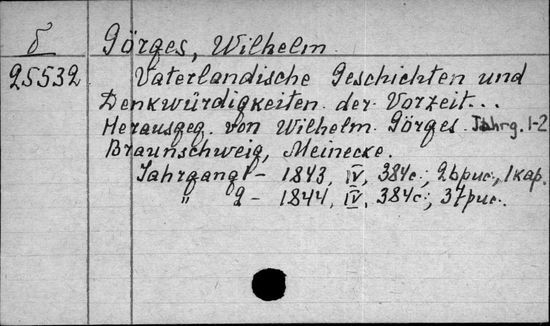 δ Görges, Wilhelm
25532 Vaterlandische Geschichten und
Denkwürdigkeiten der Vorzeit...
Herausgeg. von Wilhelm Görges. Jahrg. 1-2
Braunschweig, Meinecke.
Jahrgang 1 - 1843, IV, 384c.; 26рис., 1кар.
" 2 - 1844, IV, 384c.; 37рис.